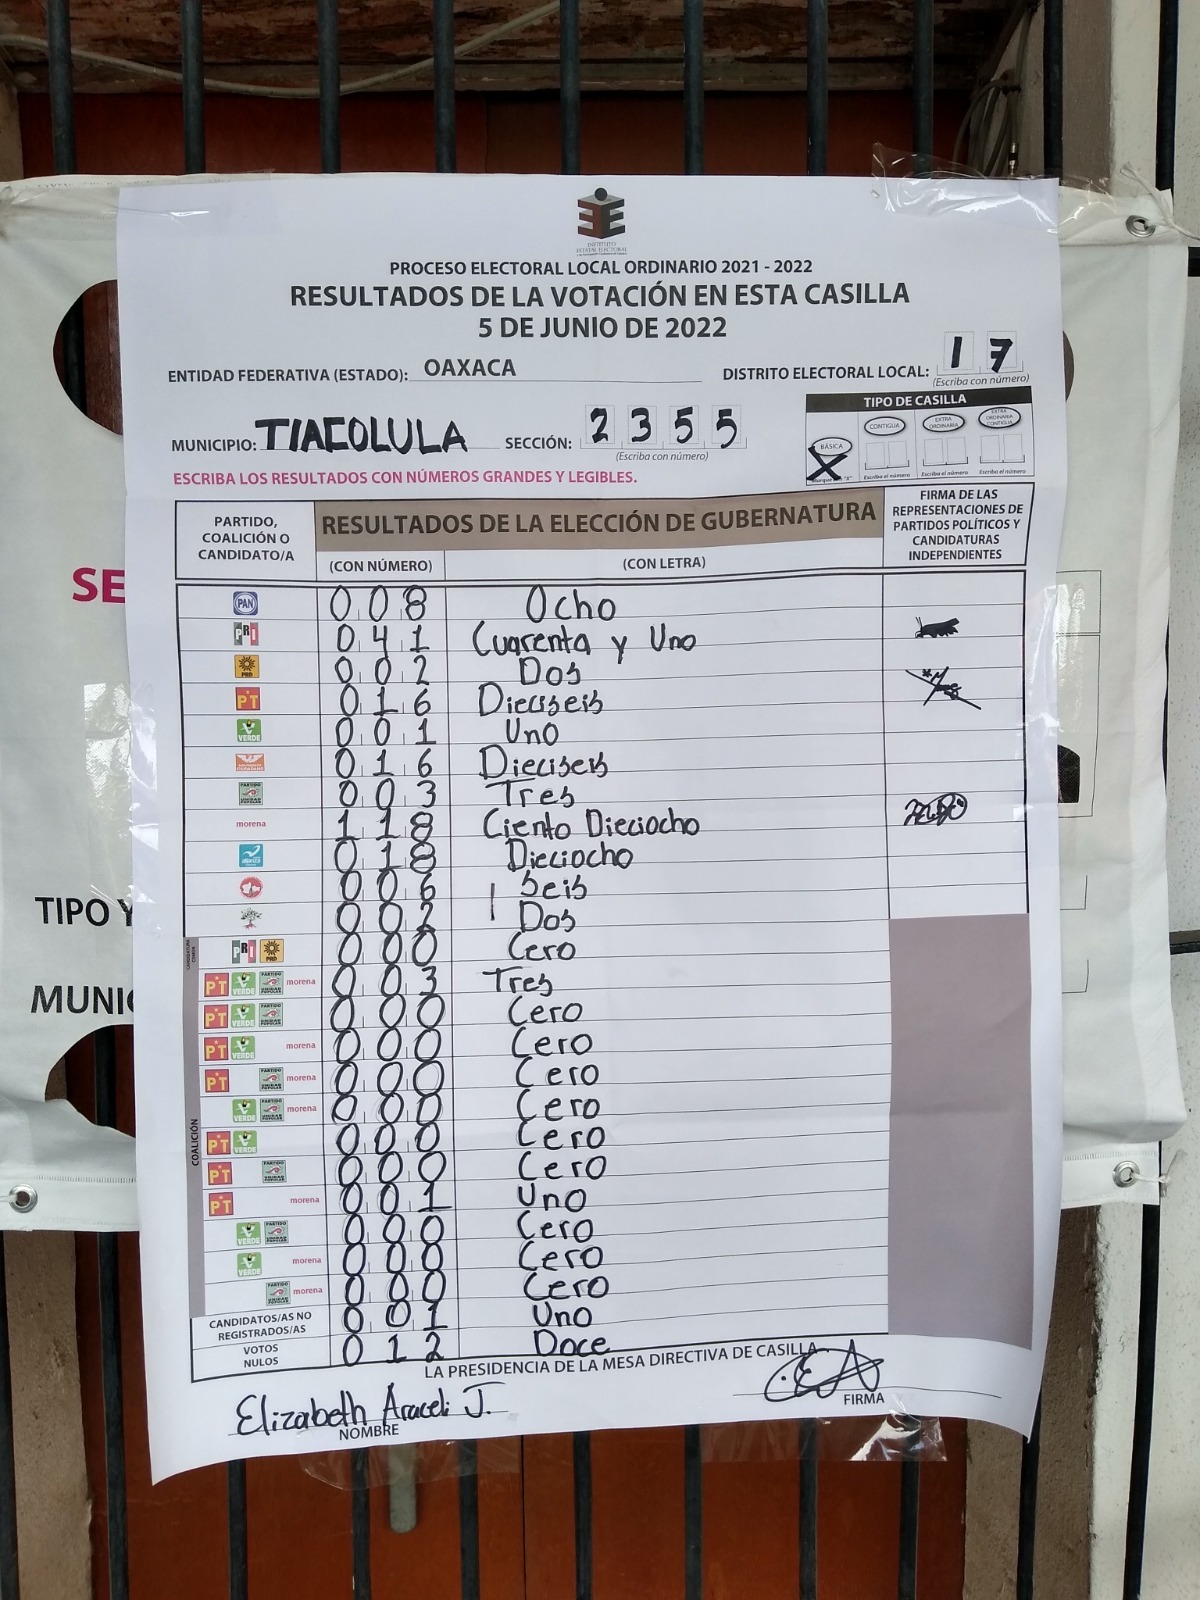 INSTITUTO
ESTATAL ELECTORAL
PROCESO ELECTORAL LOCAL ORDINARIO 2021 - 2022
RESULTADOS DE LA VOTACIÓN EN ESTA CASILLA
5 DE JUNIO DE 2022
ENTIDAD FEDERATIVA (ESTADO): OAXACA DISTRITO ELECTORAL LOCAL: 1 7
(Escriba con número)
MUNICIPIO: TlACOLULA SECCIÓN: 2 3 5 5
(Escriba con número)
TIPO DE CASILLA
BÁSICA CONTIGUA EXTRA ORDINARIA EXTRA ORDINARIA CONTIGUA
X Escriba el número Escriba el número Escriba el número
ESCRIBA LOS RESULTADOS CON NÚMEROS GRANDES Y LEGIBLES.
PARTIDO, COALICIÓN O CANDIDATO/A
RESULTADOS DE LA ELECCIÓN DE GUBERNATURA
(CON NÚMERO) (CON LETRA)
FIRMA DE LAS REPRESENTACIONES DE PARTIDOS POLÍTICOS Y CANDIDATURAS INDEPENDIENTES
PAN 0 0 8 Ocho
PRI 0 4 1 Cuarenta y Uno
PRD 0 0 2 Dos
PT 0 1 6 Dieciseis
VERDE 0 0 1 Uno
0 1 6 Dieciseis
PARTIDO UNIDAD POPULAR 0 0 3 Tres
morena 1 1 8 Ciento Dieciocho
alianza 0 1 8 Dieciocho
0 0 6 Seis
0 0 2 Dos
PRI PRD 0 0 0 Cero
PT VERDE PARTIDO UNIDAD POPULAR morena 0 0 3 Tres
PT VERDE PARTIDO UNIDAD POPULAR 0 0 0 Cero
PT VERDE morena 0 0 0 Cero
PT PARTIDO UNIDAD POPULAR morena 0 0 0 Cero
VERDE PARTIDO UNIDAD POPULAR morena 0 0 0 Cero
PT VERDE 0 0 0 Cero
PT PARTIDO UNIDAD POPULAR 0 0 0 Cero
PT morena 0 0 1 Uno
VERDE PARTIDO UNIDAD POPULAR 0 0 0 Cero
VERDE morena 0 0 0 Cero
PARTIDO UNIDAD POPULAR morena 0 0 0 Cero
COALICIÓN
CANDIDATOS/AS NO REGISTRADOS/AS 0 0 1 Uno
VOTOS NULOS 0 1 2 Doce
LA PRESIDENCIA DE LA MESA DIRECTIVA DE CASILLA
Elizabeth Araceli J.
NOMBRE FIRMA
SE
TIPO Y
MUNIC